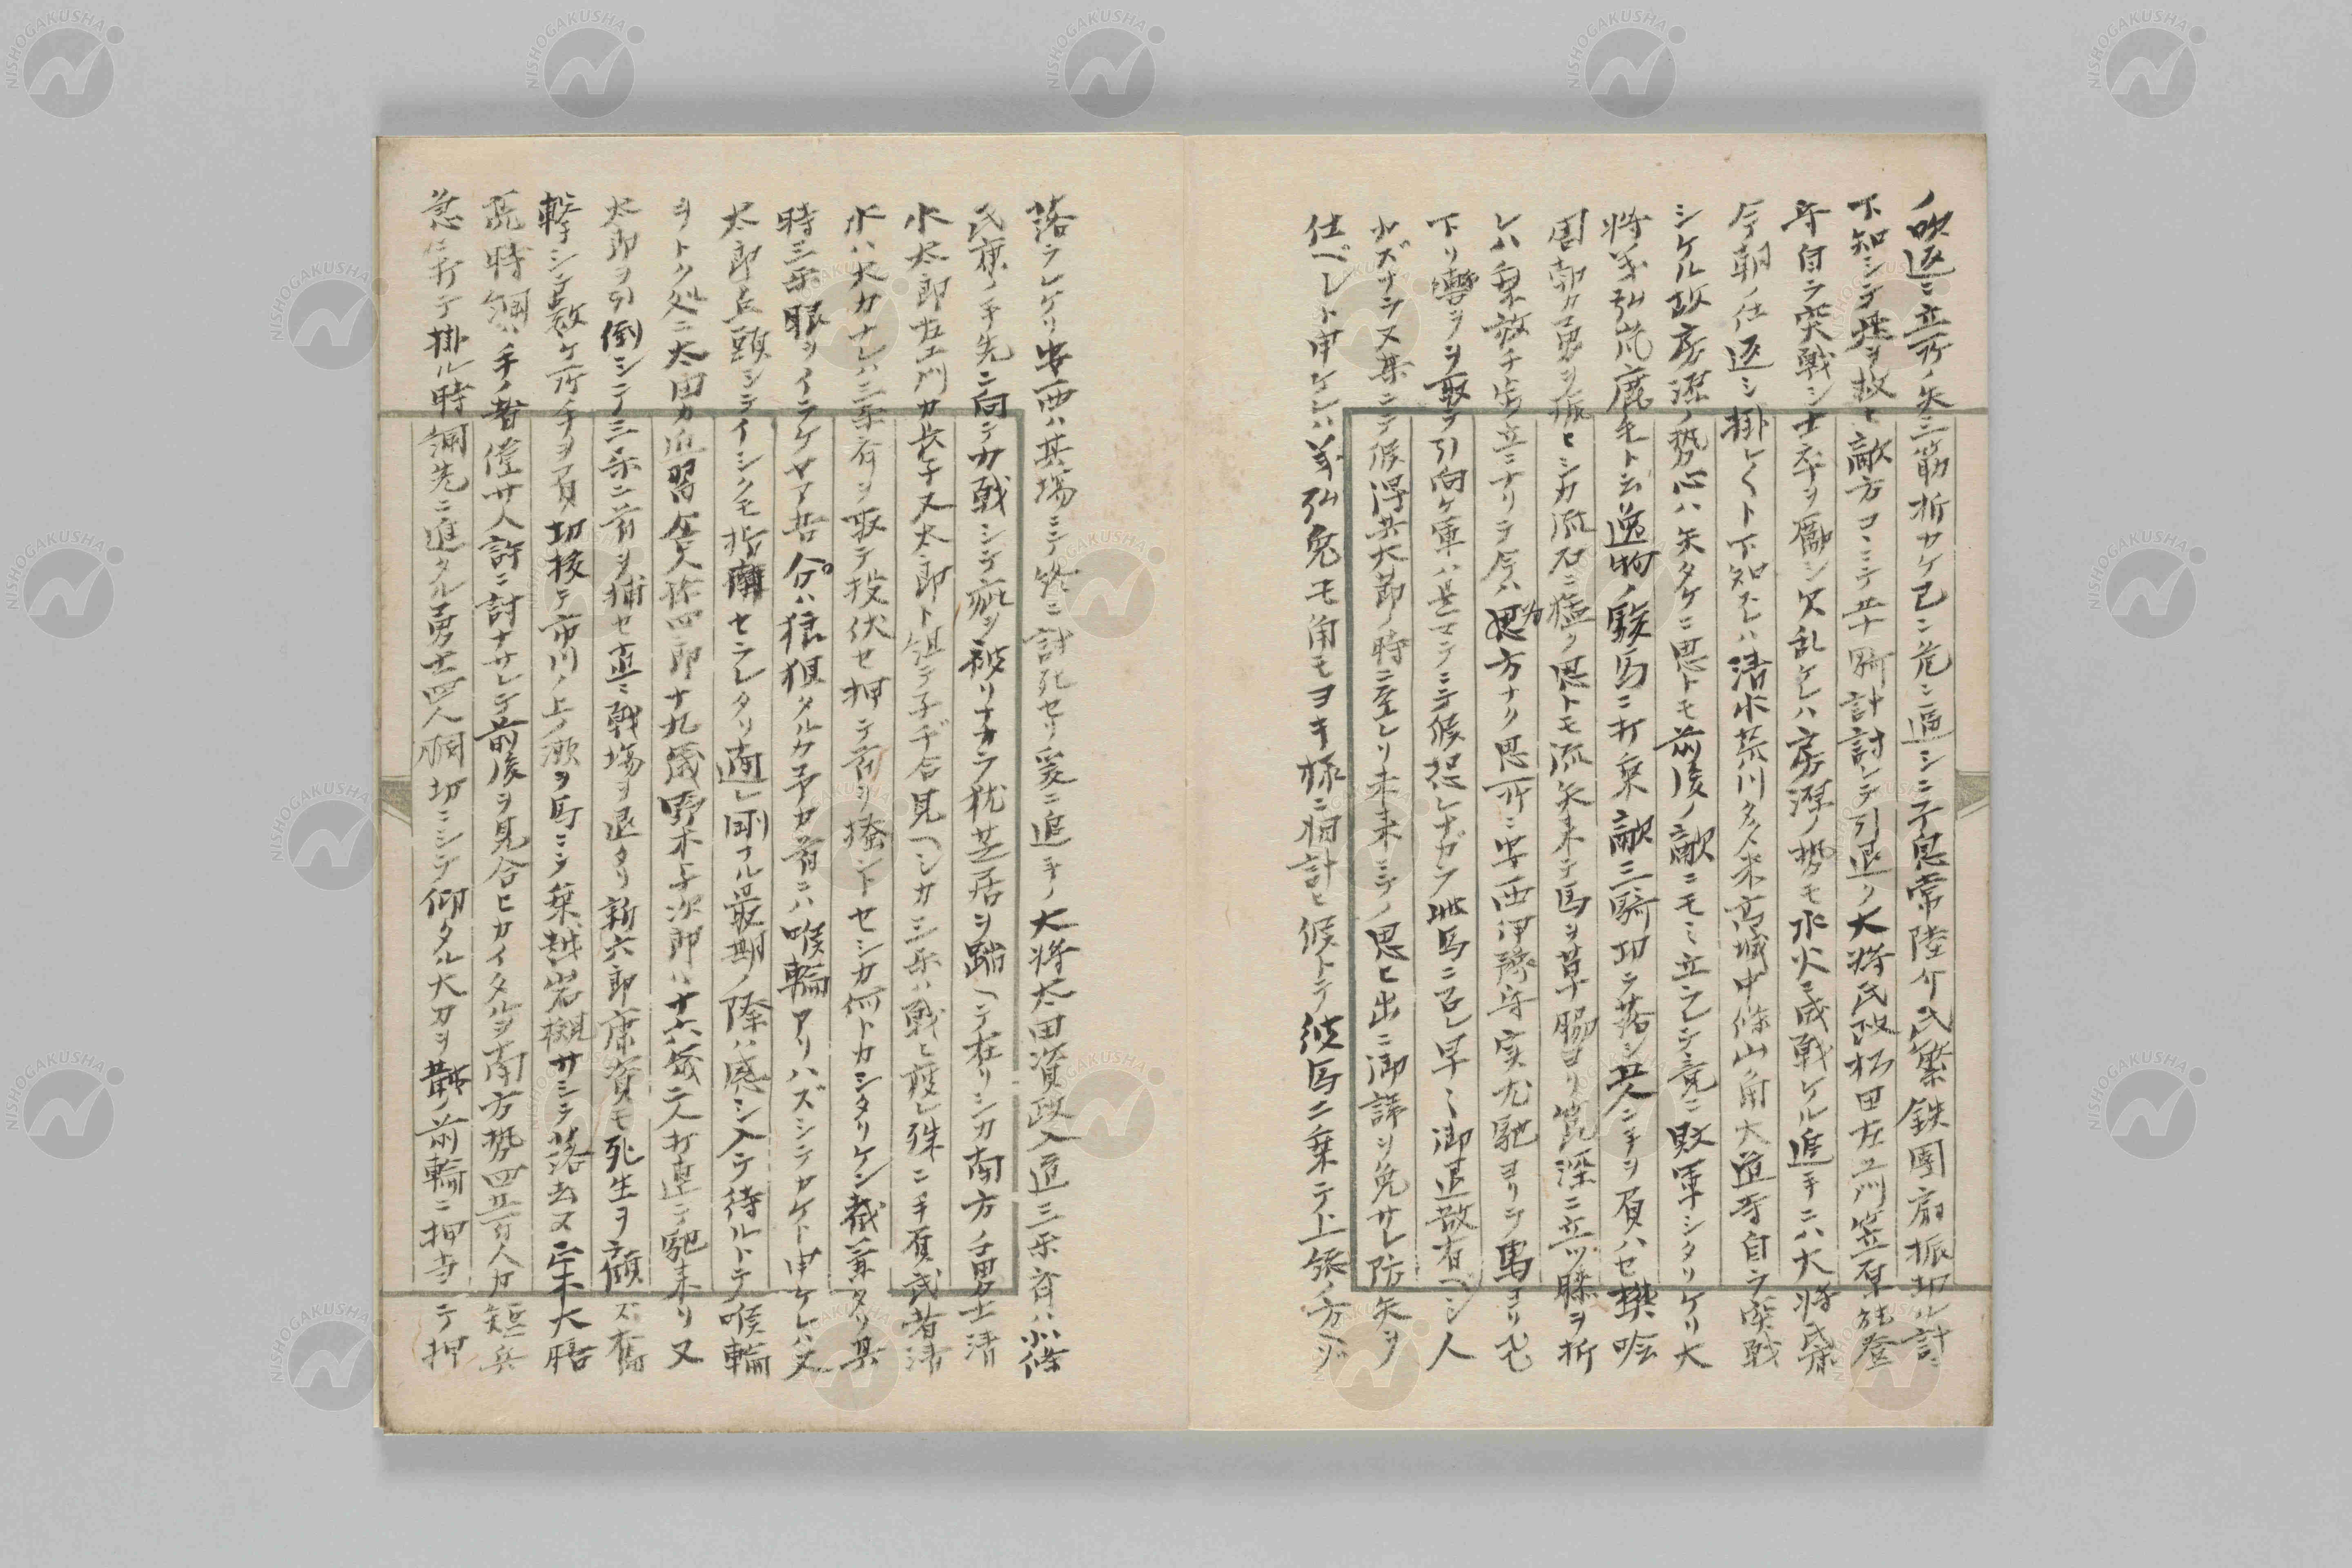 ノ吹返ニ立所ノ矢三筋折カケ已ニ危ニ逼シニ子息常陸介氏繁鉄團扇振切ル計ニ
下知シテ我ヲ救ヒ敵方ヨニテ五十騎計討シテ引退ク大将氏政松田左エ門笠原能登
守自ラ突戦シ士卒ヲ勵シ欠乱ケレハ房源ノ勢モ水火ニ成戦ケル追手ニハ大将氏康
今朝ノ仕返シ掛レ〱ト下知スレハ清水荒川多久米高城中條山角大道寺自ラ突戦
シケル故房源ノ勢心ハ矢タケニ思トモ前後ノ敵ニモミ立ラレテ竟ニ敗軍シタリケリ大
将義弘荒鹿毛ト云逸物ノ駿馬ニ打乗敵三騎切ラ落シ廿人ニ手ヲ負ハセ樊噲
周勃カ勇ヲ振ヒシカ流石ニ猛ク思トモ流矢来テ馬ヲ草脇ヨリ箆深ニ立ツ膝ヲ折
レハ乗放チ歩立ニナリテ今ハ思方ナク思所ニ安西伊豫守実尤馳ヨリテ馬ヨリ飛
下リ轡ツヲ取テ引向ケ軍ハ是マテニテ候恐レナガラ此馬ニ召レ早ミ御退散有ヘシ人
カズナラヌ某ニテ候得共大節ノ時ニ至レリ未来ニテノ思ヒ出ニ御諱ヲ免サレ防矢ヲ
仕ベレト申ケレハ義弘兎モ角モヨキ様ニ相計ヒ候トテ彼馬ニ乗テ上総ノ方ヘゾ
落ラレケリ安西ハ其場ニテ終ニ討死セリ爰ニ追手ノ大将太田資政入道三楽斎ハ北條
氏康ノ手先ニ向テカ戦シテ疵ヲ被リナカラ犹芝居ヲ踏ヘテ在リシカ南方ノ勇士清
水太郎左エ門カ長子又太郎ト組テ子ヂ合見ヘシカ三楽ハ戦ヒ疲レ殊ニ手負武者清
水ハ大力ナレハ三楽斎ヲ取テ投伏セ押テ首ヲ搔ントセシカ何トカシタリケン截兼タリ其
時三楽眼ヲイラケヤア若合ハ狼狽タルカ予カ首ニハ喉輪アリハズシテカケト申ケレハ又
太郎点頭シテイシクモ指南セラレタリ適レ剛ナル最期ノ際ハ感シ入テ待ルトテ喉輪
ヲトク処ニ太田カ近習舎人孫四郎ナ九歳野木子次郎ハ十六歳二人打連テ馳来リ又
太郎ヲ引倒シテ三楽ニ首ヲ捕セ直ニ戦場ヲ退タリ新六郎康資モ死生ヲ顧ズ奮
撃シテ数ケ所手ヲ負切抜テ市川ノ上ノ瀬ヲ馬ニテ乗越岩槻サシテ落去ヌ正木大膳
亮時綱ハ手ノ者僅廿人許ニ討ナサレテ前後ヲ見合ヒカイタルヲ南方勢四五百人カ短兵
急ニ打テ掛ル時綱先ニ進タル勇士四人胴切ニシテ仰タル大刀ヲ鞍ノ前輪ニ押寺ニテ押